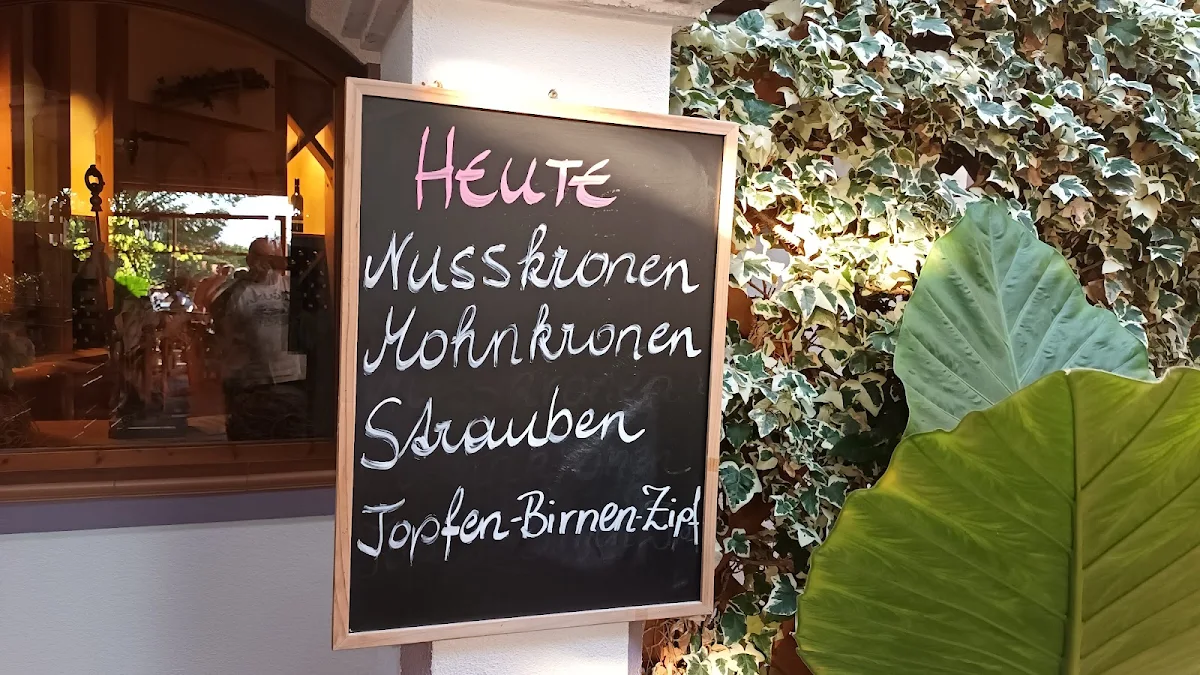 HEUTE
Nusskronen
Mohnkronen
Strauben
Topfen-Birnen-Zipf